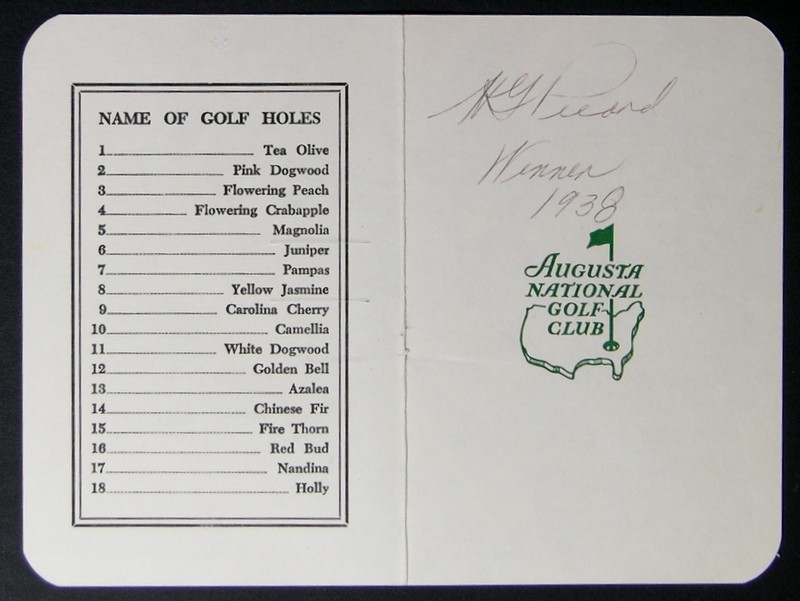 NAME OF GOLF HOLES
1 Tea Olive
2 Pink Dogwood
3 Flowering Peach
4 Flowering Crabapple
5 Magnolia
6 Juniper
7 Pampas
8 Yellow Jasmine
9 Carolina Cherry
10 Camellia
11 White Dogwood
12 Golden Bell
13 Azalea
14 Chinese Fir
15 Fire Thorn
16 Red Bud
17 Nandina
18 Holly
HG Picard
Winner
1938
AUGUSTA
NATIONAL
GOLF
CLUB